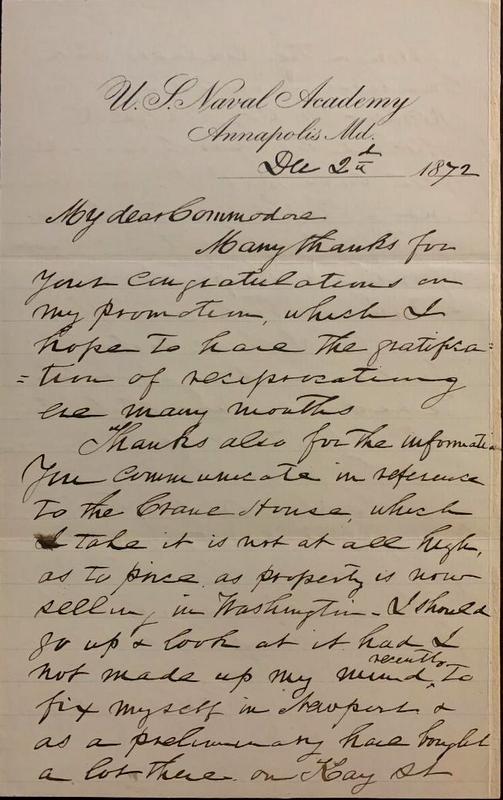 U. S. Naval Academy
Annapolis Md.
Dec 2d 1872
My dear Commodore
Many thanks for
your congratulations on
my promotion, which I
hope to have the gratifica=
=tion of reciprocating
ere many months
Thanks also for the information
you communicate in reference
to the Crane House, which
I take it is not at all high,
as to price as property is now
selling in Washington - I should
go up & look at it had I
not made up my mind recently to
fix myself in Newport &
as a preliminary have bought
a lot there on Kay St